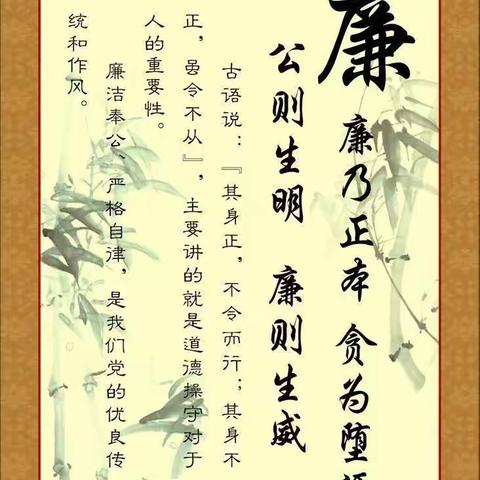 廉
廉乃正本 贪为堕
公则生明 廉则生威
古语说：『其身正，不令而行；其身不
正，虽令不从』，主要讲的就是道德操守对于
人的重要性。
廉洁奉公、严格自律，是我们党的优良传
统和作风。